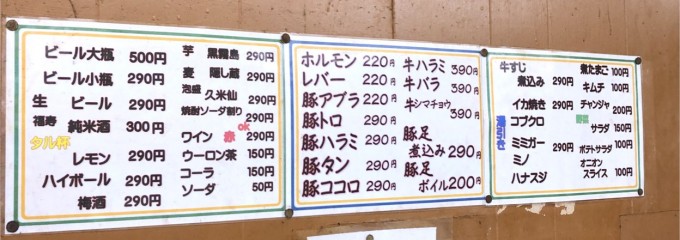 ビール大瓶 500円
ビール小瓶 290円
生 ビール 290円
福寿 純米酒 300円
タル杯
レモン 290円
ハイボール 290円
梅酒 290円
芋 黒霧島 290円
麦 隠し蔵 290円
泡盛 久米仙 290円
焼酎ソーダ割り 290円
ワイン 赤 ok 290円
ウーロン茶 150円
コーラ 150円
ソーダ 50円
ホルモン 220円
レバー 220円
豚アブラ 220円
豚トロ 290円
豚ハラミ 290円
豚タン 290円
豚ココロ 290円
牛ハラミ 390円
牛バラ 390円
牛シマチョウ 390円
豚足
煮込み 290円
豚足
ボイル 200円
牛すじ
煮込み 290円
イカ焼き 290円
湯引き
コブクロ
ミミガー
ミノ 290円
ハナスジ
煮たまご 100円
キムチ 100円
チャンジャ 200円
野菜
サラダ 150円
ポテトサラダ 100円
オニオン
スライス 100円